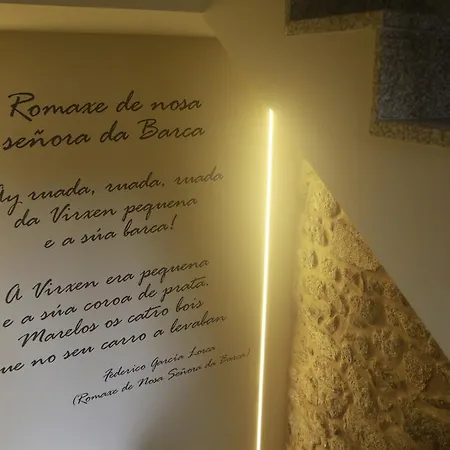 Romaxe de nosa
señora da Barca
Ay ruada, ruada, ruada
da Virxen pequena
e a súa barca!
A Virxen era pequena
e a súa coroa de prata.
Marelos os catro bois
que no seu carro a levaban
Federico García Lorca
(Romaxe de Nosa Señora da Barca)